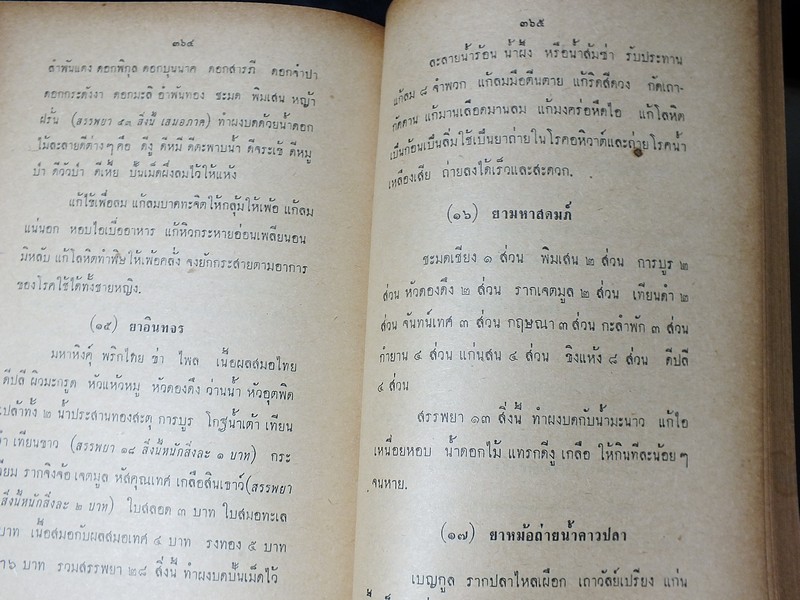 ๓๖๔
ลำพันแดง ดอกพิกุล ดอกบุนนาค ดอกสารภี ดอกจำปา
ดอกกระดังงา ดอกมะลิ อำพันทอง ชะมด พิมเสน หญ้า
ฝรั่น (สรรพยา ๕๓ สิ่งนี้ เสมอภาค) ทำผงบดด้วยน้ำดอก
ไม้ละลายดีต่างๆ คือ ดีงู ดีหมี ดีตะพาบน้ำ ดีจระเข้ ดีหมู
ป่า ดีวัวป่า ดีเหี้ย ปั้นเม็ดผึ่งลมไว้ให้แห้ง
แก้ไข้เพื่อลม แก้ลมบาดทะจิตให้กลุ้มให้เพ้อ แก้ลม
แน่นอก หอบไอเบื่ออาหาร แก้หิวกระหายอ่อนเพลียนอน
มิหลับ แก้โลหิตทำพิษให้เพ้อคลั่ง จงยักกระสายตามอาการ
ของโรคใช้ได้ทั้งชายหญิง.
(๑๕) ยาอินทจร
มหาหิงคุ์ พริกไทย ข่า ไพล เนื้อผลสมอไทย
ดีปลี ผิวมะกรูด หัวแห้วหมู หัวดองดึง ว่านน้ำ หัวอุตพิด
เปล้าทั้ง ๒ น้ำประสานทองสะตุ การบูร โกฐน้ำเต้า เทียน
ดำ เทียนขาว (สรรพยา ๑๘ สิ่งนี้หนักสิ่งละ ๑ บาท) กระ
เทียม รากจิงจ้อ เจตมูล หัสคุณเทศ เกลือสินเธาว์ (สรรพยา
สิ่งนี้หนักสิ่งละ ๒ บาท) ใบสลอด ๓ บาท ใบสมอทะเล
บาท เนื้อสมอกับผลสมอเทศ ๔ บาท รงทอง ๕ บาท
๖ บาท รวมสรรพยา ๒๘ สิ่งนี้ ทำผงบดปั้นเม็ดไว้
๓๖๕
ละลายน้ำร้อน น้ำผึ้ง หรือน้ำส้มซ่า รับประทาน
แก้ลม ๘ จำพวก แก้ลมมือตีนตาย แก้ริดสีดวง กัดเถา-
กัดดาน แก้มานเลือดมานลม แก้มงคร่อหืดไอ แก้โลหิต
เป็นก้อนเป็นลิ่มใช้เป็นยาถ่ายในโรคอหิวาต์และถ่ายโรคน้ำ
เหลืองเสีย ถ่ายลงได้เร็วและสะดวก.
(๑๖) ยามหาสดมภ์
ชะมดเชียง ๑ ส่วน พิมเสน ๒ ส่วน การบูร ๒
ส่วน หัวดองดึง ๒ ส่วน รากเจตมูล ๒ ส่วน เทียนดำ ๒
ส่วน จันทน์เทศ ๓ ส่วน กฤษณา ๓ ส่วน กะลำพัก ๓ ส่วน
กำยาน ๔ ส่วน แก่นสน ๔ ส่วน ขิงแห้ง ๘ ส่วน ดีปลี
๔ ส่วน
สรรพยา ๑๓ สิ่งนี้ ทำผงบดกับน้ำมะนาว แก้ไอ
เหนื่อยหอบ น้ำดอกไม้ แทรกดีงู เกลือ ให้กินทีละน้อยๆ
จนหาย.
(๑๗) ยาหม้อถ่ายน้ำคาวปลา
เบญกูล รากปลาไหลเผือก เถาวัลย์เปรียง แก่น